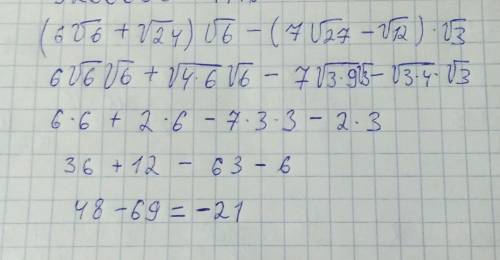 (6√6 + √24) √6 − (7√27 − √12) · √3
6√6 √6 + √4·6 √6 − 7√3·9√3 − √3·4 · √3
6·6 + 2·6 − 7·3·3 − 2·3
36 + 12 − 63 − 6
48 − 69 = −21